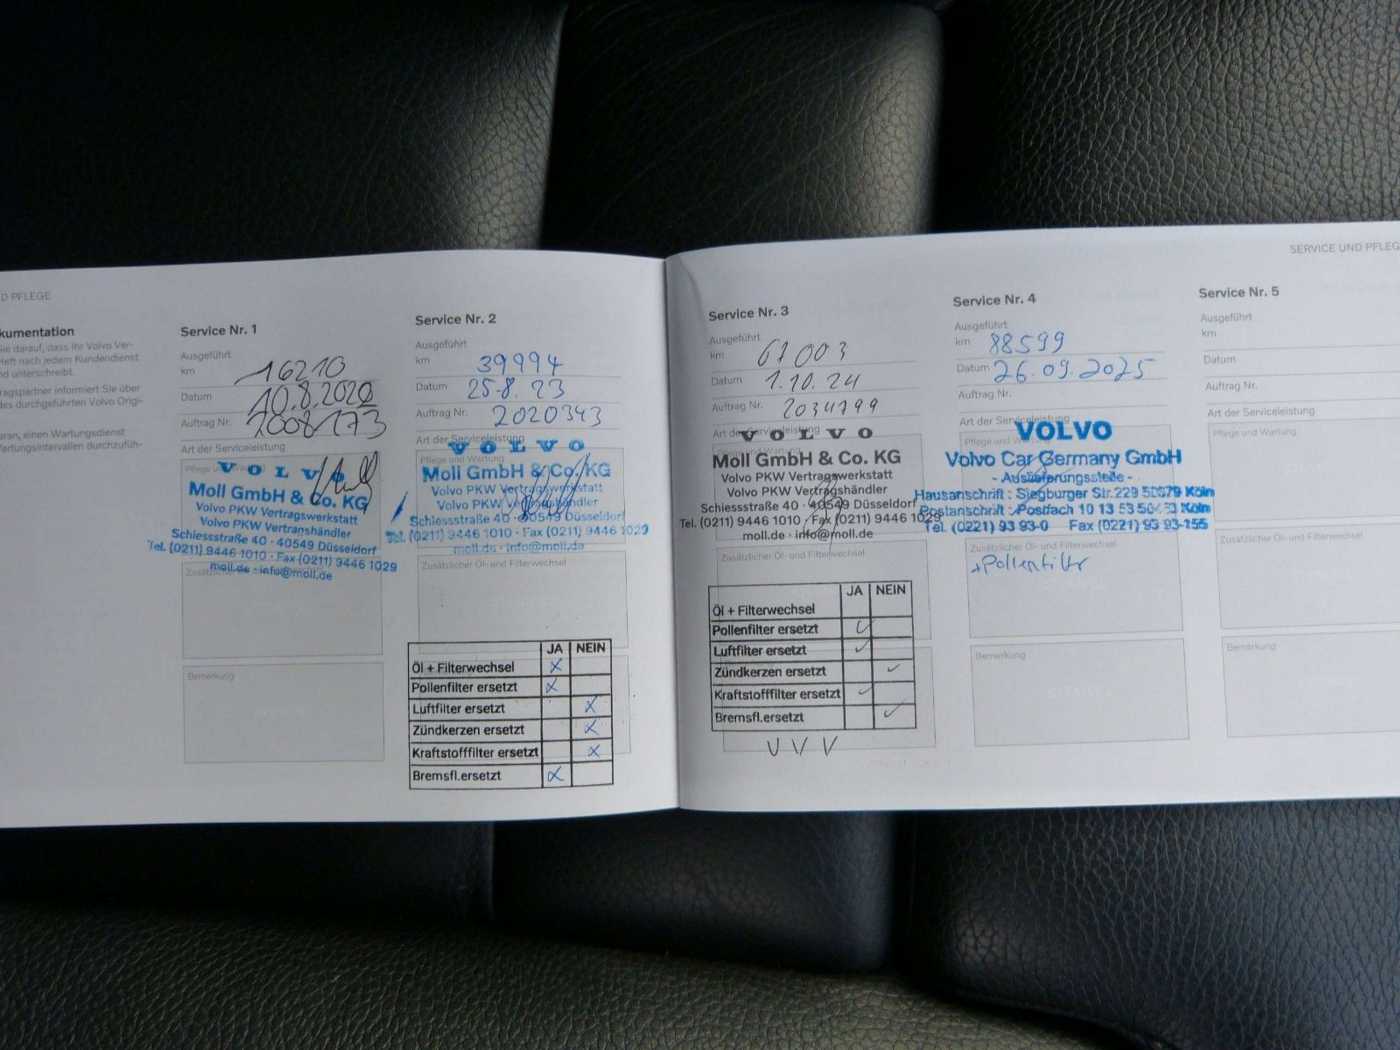 D PFLEGE
kumentation
Sie darauf, dass Ihr Volvo Ver-
Heft nach jedem Kundendienst
nd unterschreibt.
tragspartner informiert Sie über
des durchgeführten Volvo Origi-
aran, einen Wartungsdienst
Wartungsintervallen durchzufüh-
Service Nr. 1
Ausgeführt
km 16210
Datum 10.8.2020
Auftrag Nr. 2008173
Art der Serviceleistung
Pflege und
VOLVO
Moll GmbH & Co. KG
Volvo PKW Vertragswerkstatt
Volvo PKW Vertragshändler
Schiessstraße 40 · 40549 Düsseldorf
Tel. (0211) 9446 1010 · Fax (0211) 9446 1029
moll.de · info@moll.de
Bemerkung
Service Nr. 2
Ausgeführt
km 39994
Datum 25.8.23
Auftrag Nr. 2020343
Art der Serviceleistung
Pflege und Wartung
VOLVO
Moll GmbH & Co. KG
Volvo PKW Vertragswerkstatt
Volvo PKW Vertragshändler
Schiessstraße 40 · 40549 Düsseldorf
Tel. (0211) 9446 1010 · Fax (0211) 9446 1029
moll.de · info@moll.de
Zusätzlicher Öl- und Filterwechsel
JA NEIN
Öl + Filterwechsel X
Pollenfilter ersetzt X
Luftfilter ersetzt X
Zündkerzen ersetzt X
Kraftstofffilter ersetzt X
Bremsfl.ersetzt X
SERVICE UND PFLEG
Service Nr. 3
Ausgeführt
km 67003
Datum 1.10.24
Auftrag Nr. 2034799
Art der Serviceleistung
VOLVO
Moll GmbH & Co. KG
Volvo PKW Vertragswerkstatt
Volvo PKW Vertragshändler
Schiessstraße 40 · 40549 Düsseldorf
Tel. (0211) 9446 1010 · Fax (0211) 9446 1029
moll.de · info@moll.de
Zusätzlicher Öl- und Filterwechsel
JA NEIN
Öl + Filterwechsel
Pollenfilter ersetzt ✓
Luftfilter ersetzt ✓
Zündkerzen ersetzt ✓
Kraftstofffilter ersetzt ✓
Bremsfl.ersetzt ✓
Service Nr. 4
Ausgeführt
km 88599
Datum 26.09.2025
Auftrag Nr.
Art der Serviceleistung
Pflege und Wartung
VOLVO
Volvo Car Germany GmbH
- Auslieferungsstelle -
Hausanschrift : Siegburger Str. 229 50679 Köln
Postanschrift : Postfach 10 13 53 Köln
Tel. (0221) 93 93-0 Fax (0221) 93 93-155
Zusätzlicher Öl- und Filterwechsel
+Pollenfilter
Bemerkung
Service Nr. 5
Ausgeführt
km
Datum
Auftrag Nr.
Art der Serviceleistung
Pflege und Wartung
Zusätzlicher Öl- und Filterwechsel
Bemerkung